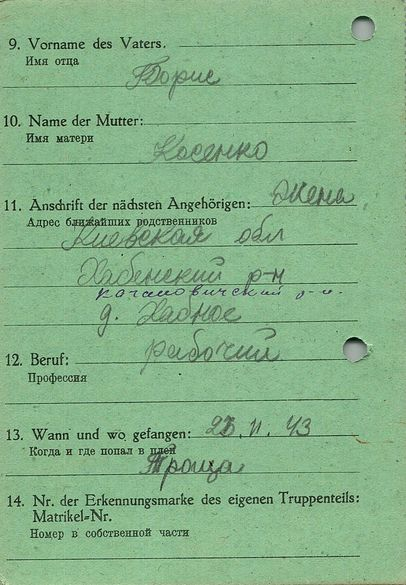 9. Vorname des Vaters.
Имя отца
Борис
10. Name der Mutter:
Имя матери
Косенко
11. Anschrift der nächsten Angehörigen: Жена
Адрес ближайших родственников
Киевская обл
Хабенский р-н
кагановичский р-н.
д. Хабное
12. Beruf: рабочий
Профессия
13. Wann und wo gefangen: 11. 43
Когда и где попал в плен
14. Nr. der Erkennungsmarke des eigenen Truppenteils:
Matrikel-Nr.
Номер в собственной части